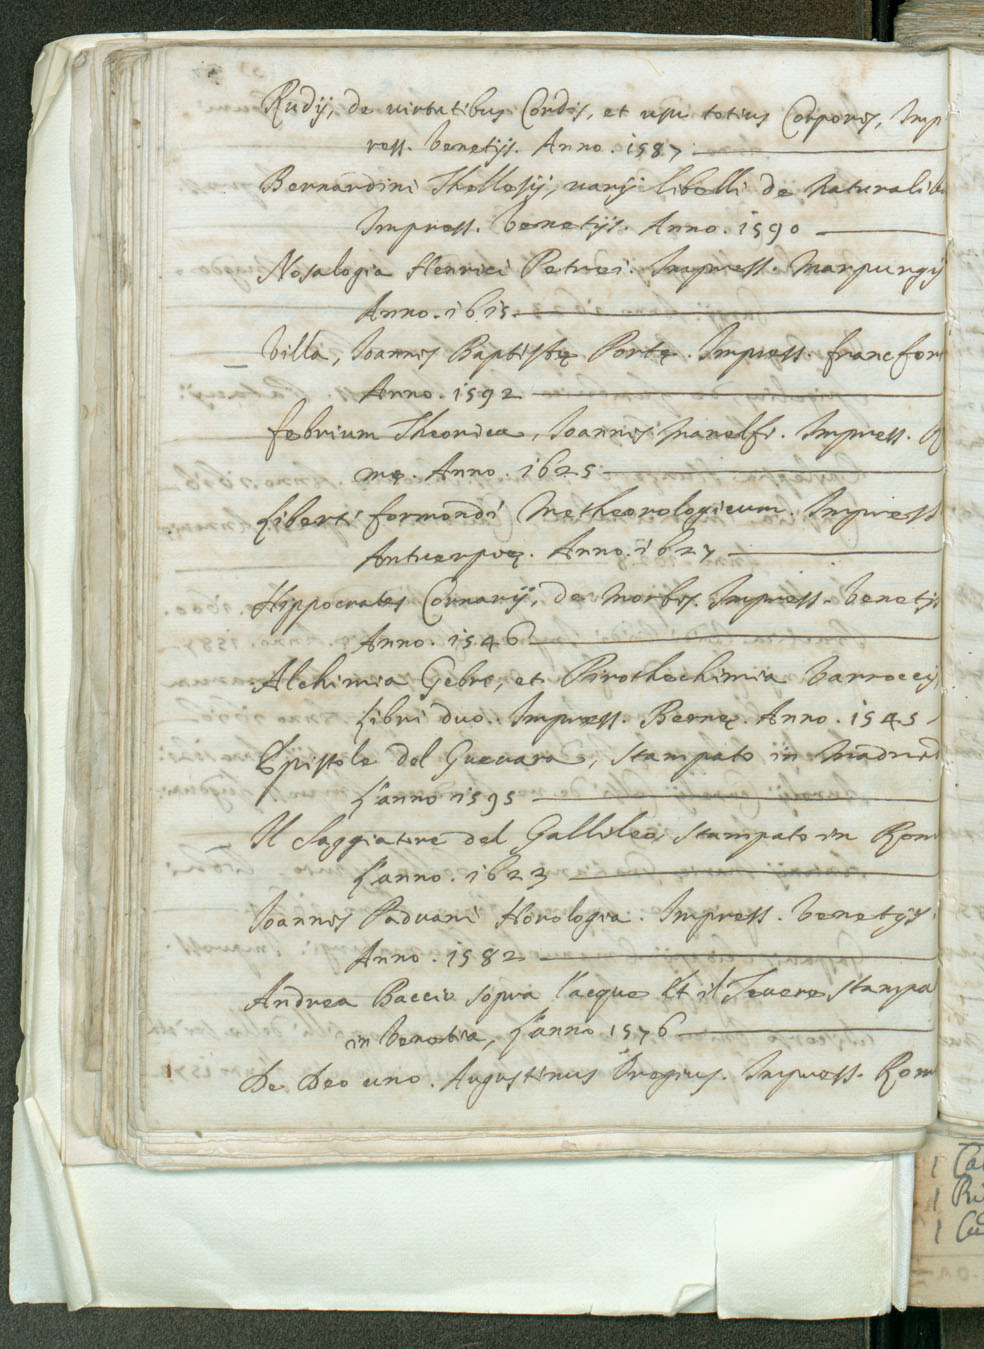 Rudij, de uirtutibus Cordis, et usu totius Corporis, Imp
ress. Venetijs. Anno. 1587
Bernardini Thellesij, varij libelli de Naturalib
Impress. Venetijs. Anno. 1590
Nosalogia Henrici Petrei. Impress. Marpurgij
Anno. 1615
Villa, Ioannis Baptistę Portę. Impress. francfor
Anno. 1592
febrium Theorica, Ioannis Manelfi. Impress.
mę. Anno. 1625
Liberti formondi Metheorologicum. Impress
Antuerpię. Anno. 1627
Hippocrates Cornarij, de Morbis. Impress. Venetijs
Anno. 1546
Alchimia Gebre, et Pirothechimia
Libri duo. Impress. Bernę. Anno. 1545
Epistole del Gueuara, stampato in Madrid
L'anno 1595
Il Saggiatore del Gallileo, stampato in Rom
L'anno. 1623
Ioannis Paduani Horologia. Impress. Venetijs
Anno. 1582
Andrea Baccio sopra l'acque et il Teuere stampa
in Venetia, L'anno 1576
De Deo uno. Augustinus Oregius. Impress. Rom